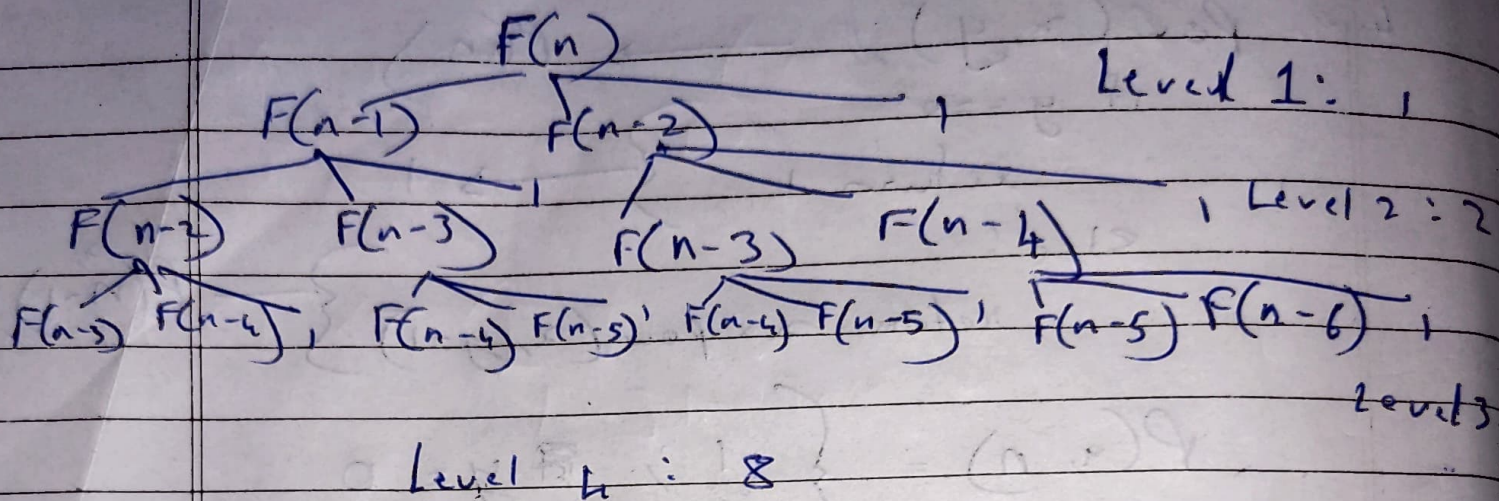 F(n)
Level 1: 1
F(n-1) F(n-2) 1
F(n-2) F(n-3) 1 F(n-3) F(n-4) 1 Level 2: 2
F(n-3) F(n-4) 1 F(n-4) F(n-5) 1 F(n-4) F(n-5) 1 F(n-5) F(n-6) 1
Level 3
Level 4 : 8